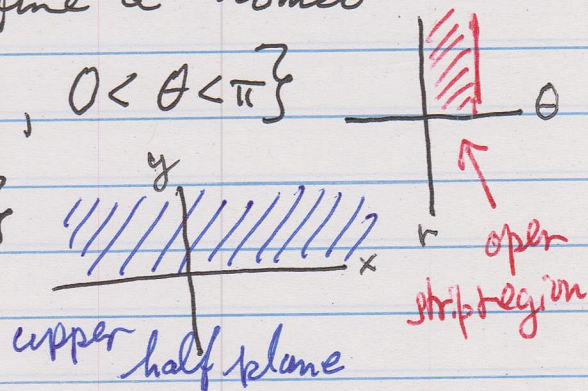 , 0 < θ < π}
θ
y
x
r
open
strip region
upper half plane